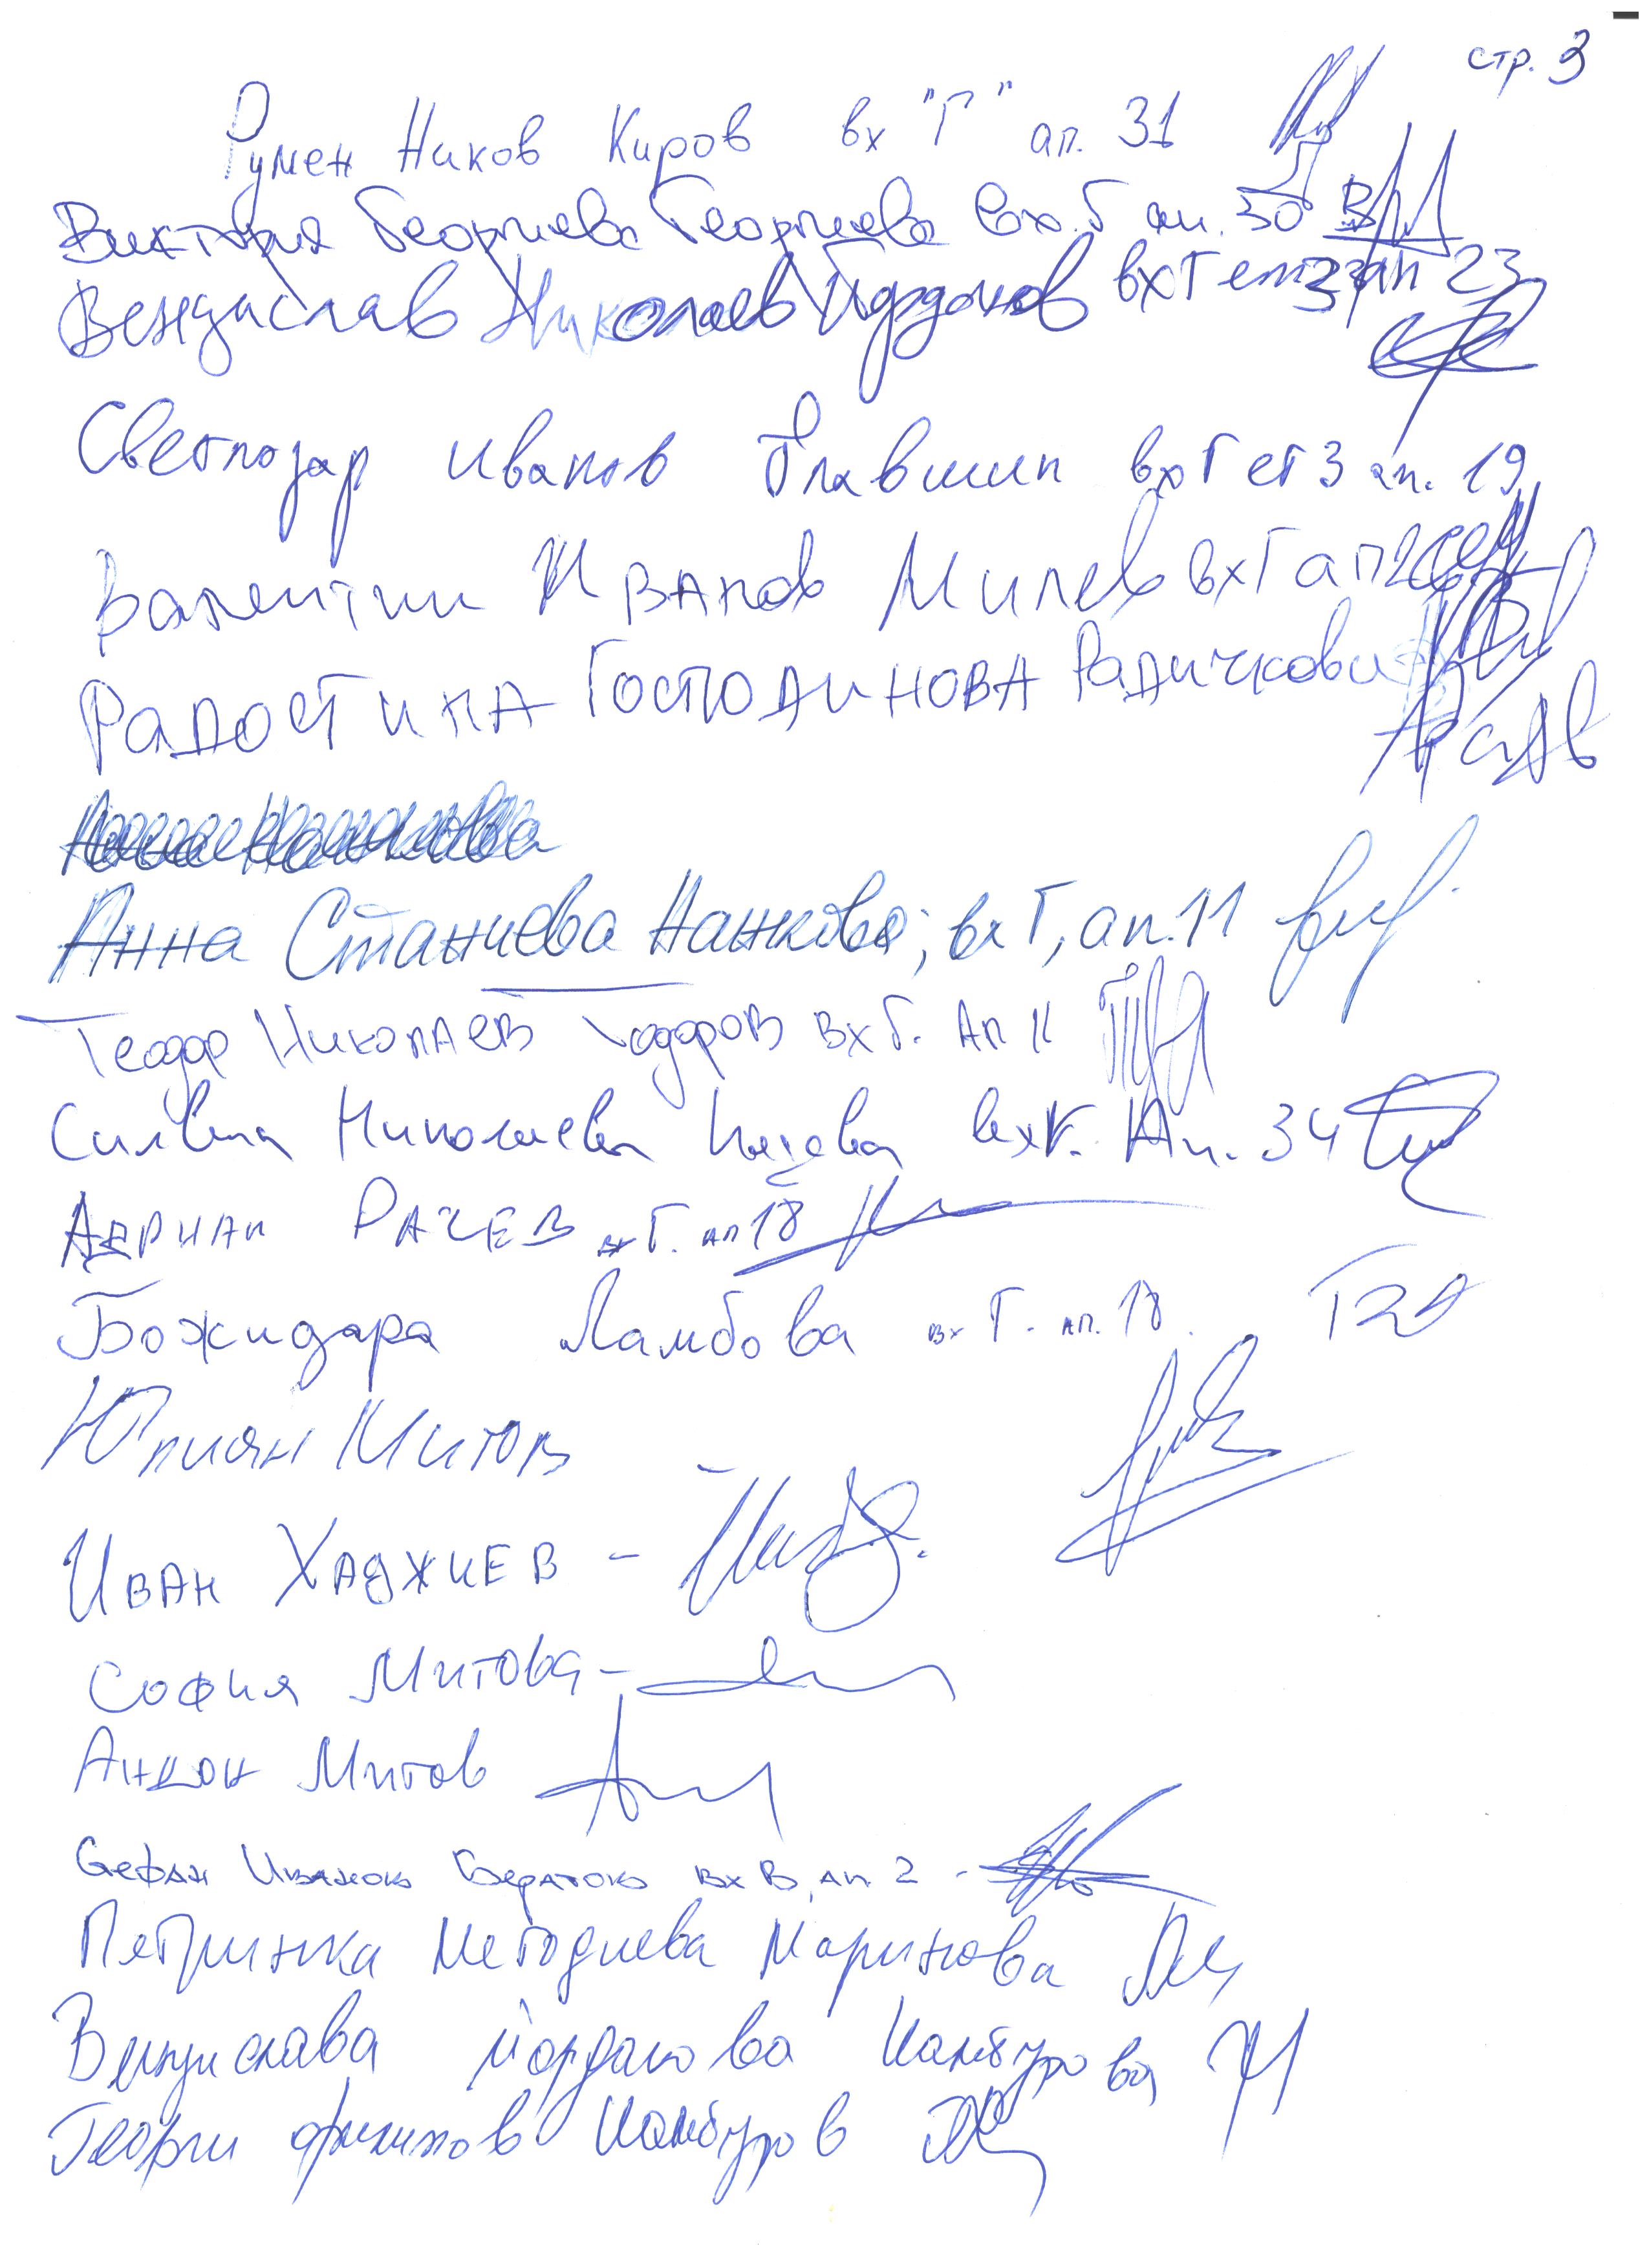 стр. 3
Румен Ников Киров вх "Г" ап. 31
Виктория Георгиева Георгиева вх. Г ап. 30
Венцислав Николаев Йорданов вх Г ет 3 ап 23
Светлозар Иванов Плавшин вх Г ет 3 ап. 19
Валентин Иванов Милев вх Г ап
Радостина Господинова Радичкова
Анна Станчева Нанкова; вх Г, ап. 11
Теодор Николаев Тодоров вх Г. Ап 11
Силвия Николаева вх Г. Ап. 34
Адриан Рачев вх Г. ап 18
Божидара Ламбова вх Г. ап. 18
Юлиян Митов
Иван Хаджиев -
София Митова -
Митов
Стефан Иванов вх В, ап. 2 -
Петринка Методиева Маринова
Венцислава Йорданова Камбурова
Георги Филипов Камбуров